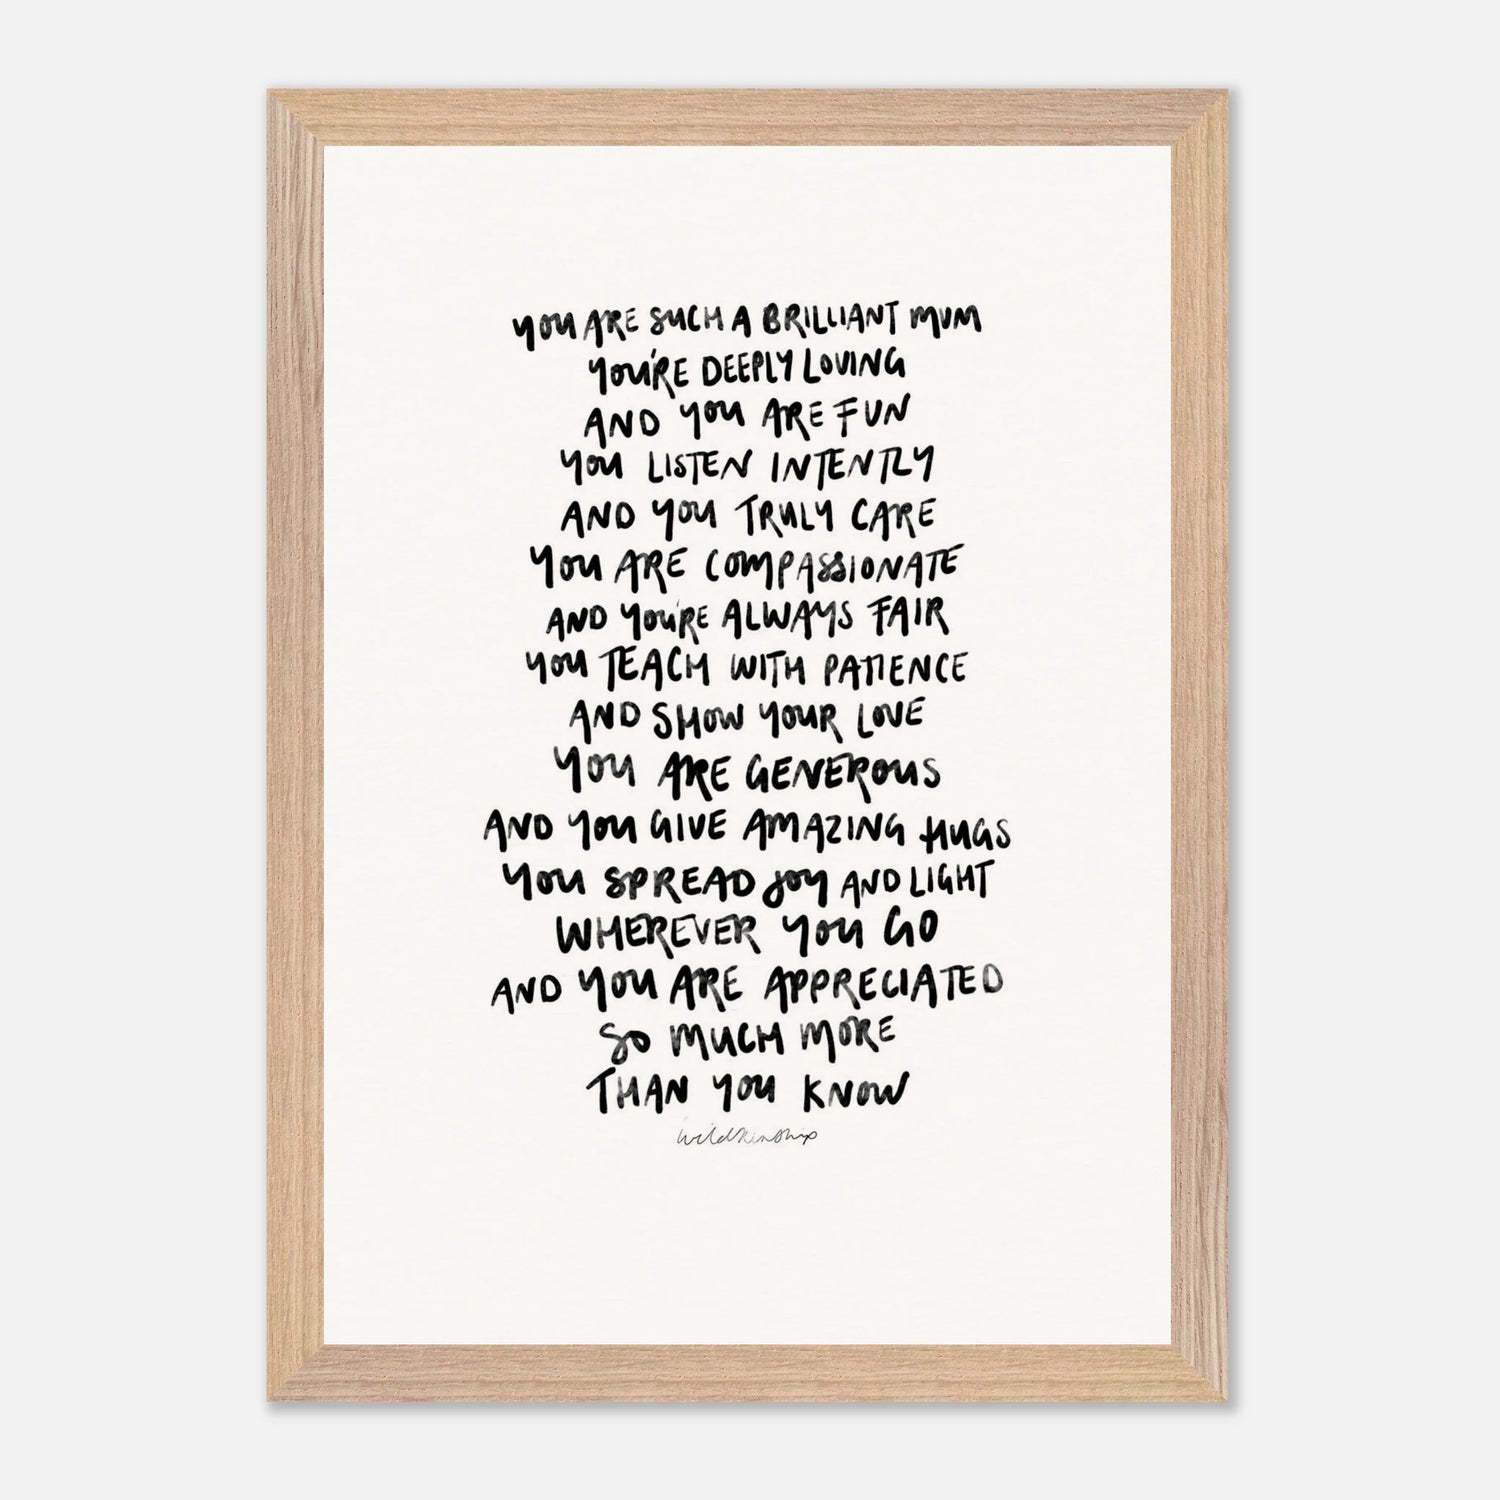 YOU ARE SUCH A BRILLIANT MUM
YOU'RE DEEPLY LOVING
AND YOU ARE FUN
YOU LISTEN INTENTLY
AND YOU TRULY CARE
YOU ARE COMPASSIONATE
AND YOU'RE ALWAYS FAIR
YOU TEACH WITH PATIENCE
AND SHOW YOUR LOVE
YOU ARE GENEROUS
AND YOU GIVE AMAZING HUGS
YOU SPREAD JOY AND LIGHT
WHEREVER YOU GO
AND YOU ARE APPRECIATED
SO MUCH MORE
THAN YOU KNOW
wildkinship